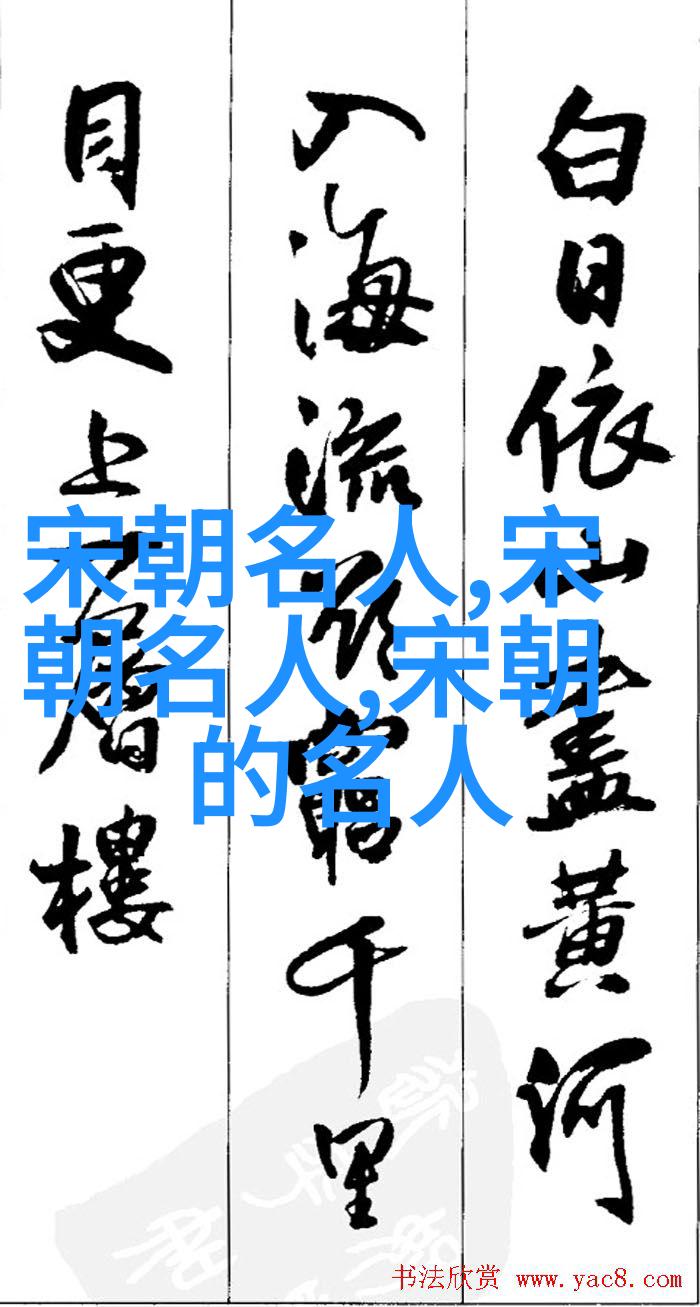 白日依山盡黄河
入海流欲窮千里
目更上一層樓
宋朝名人,宋
朝名人,宋朝
的名人
书法欣赏 www.yac8.com